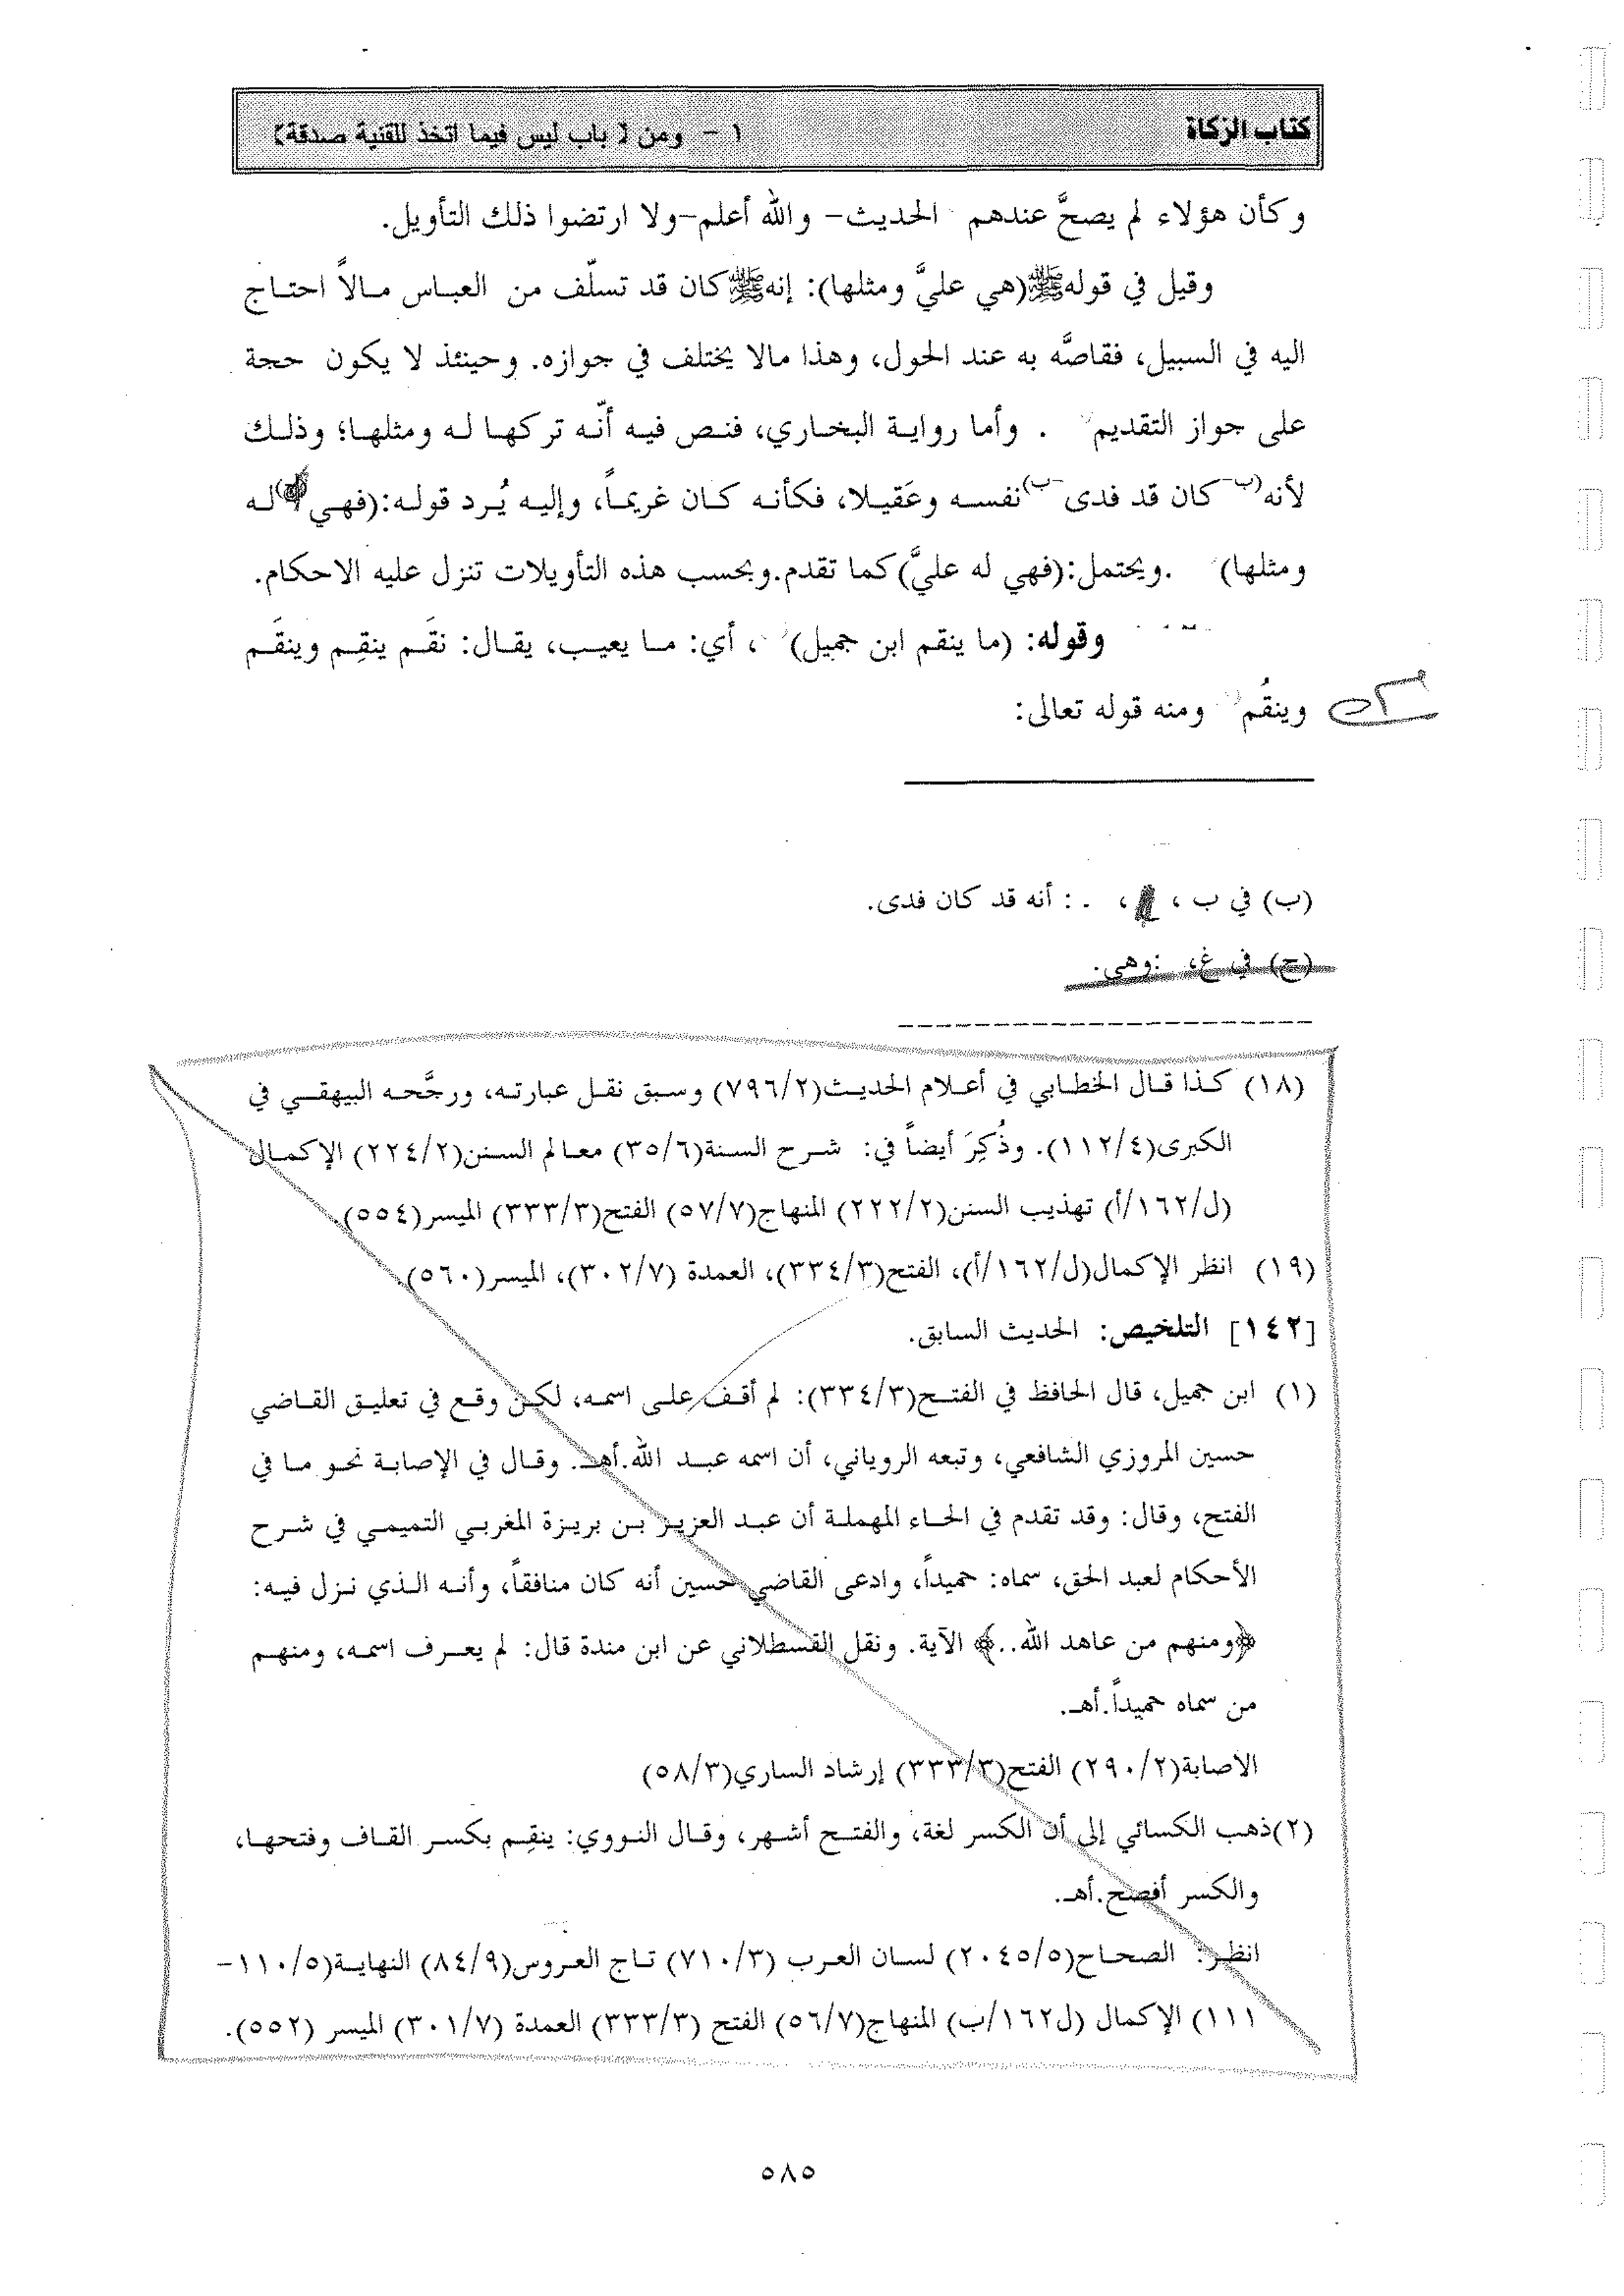 كتاب الزكاة
١ - ومن [ باب ليس فيما اتخذ للقنية صدقة]
وكأن هؤلاء لم يصحَّ عندهم الحديث- والله أعلم-ولا ارتضوا ذلك التأويل.
وقيل في قولهﷺ(هي عليَّ ومثلها): إنهﷺكان قد تسلّف من العباس مالاً احتاج
اليه في السبيل، فقاصَّه به عند الحول، وهذا مالا يختلف في جوازه. وحينئذ لا يكون حجة
على جواز التقديم . وأما رواية البخاري، فنص فيه أنّه تركها له ومثلها؛ وذلك
لأنه(ب- كان قد فدى -ب)نفسه وعَقيلا، فكأنه كان غريماً، وإليه يُرد قوله:(فهي له
ومثلها) .ويحتمل:(فهي له عليَّ)كما تقدم.وبحسب هذه التأويلات تنزل عليه الاحكام.
وقوله: (ما ينقم ابن جميل) ، أي: ما يعيب، يقال: نقَم ينقِم وينقَم
وينقُم ومنه قوله تعالى:
(ب) في ب ، ، . : أنه قد كان فدى.
(ح) في غ، :وهي.
(١٨) كذا قال الخطابي في أعلام الحديث(٧٩٦/٢) وسبق نقل عبارته، ورجَّحه البيهقي في
الكبرى(١١٢/٤). وذُكِرَ أيضاً في: شرح السنة(٣٥/٦) معالم السنن(٢٢٤/٢) الإكمال
(ل/١٦٢/أ) تهذيب السنن(٢٢٢/٢) المنهاج(٥٧/٧) الفتح(٣٣٣/٣) الميسر(٥٥٤).
(١٩) انظر الإكمال(ل/١٦٢/أ)، الفتح(٣٣٤/٣)، العمدة (٣٠٢/٧)، الميسر(٥٦٠).
[١٤٢] التلخيص: الحديث السابق.
(١) ابن جميل، قال الحافظ في الفتح(٣٣٤/٣): لم أقف على اسمه، لكن وقع في تعليق القاضي
حسين المروزي الشافعي، وتبعه الروياني، أن اسمه عبد الله.أهـ. وقال في الإصابة نحو ما في
الفتح، وقال: وقد تقدم في الحاء المهملة أن عبد العزيز بن بريزة المغربي التميمي في شرح
الأحكام لعبد الحق، سماه: حميداً، وادعى القاضي حسين أنه كان منافقاً، وأنه الذي نزل فيه:
﴿ومنهم من عاهد الله..﴾ الآية. ونقل القسطلاني عن ابن مندة قال: لم يعرف اسمه، ومنهم
من سماه حميداً.أهـ.
الاصابة(٢٩٠/٢) الفتح(٣٣٣/٣) إرشاد الساري(٥٨/٣)
(٢)ذهب الكسائي إلى أن الكسر لغة، والفتح أشهر، وقال النووي: ينقِم بكسر القاف وفتحها،
والكسر أفصح.أهـ.
انظر: الصحاح(٢٠٤٥/٥) لسان العرب (٧١٠/٣) تاج العروس(٨٤/٩) النهاية(١١٠/٥-
١١١) الإكمال (ل١٦٢/ب) المنهاج(٥٦/٧) الفتح (٣٣٣/٣) العمدة (٣٠١/٧) الميسر (٥٥٢).
٥٨٥